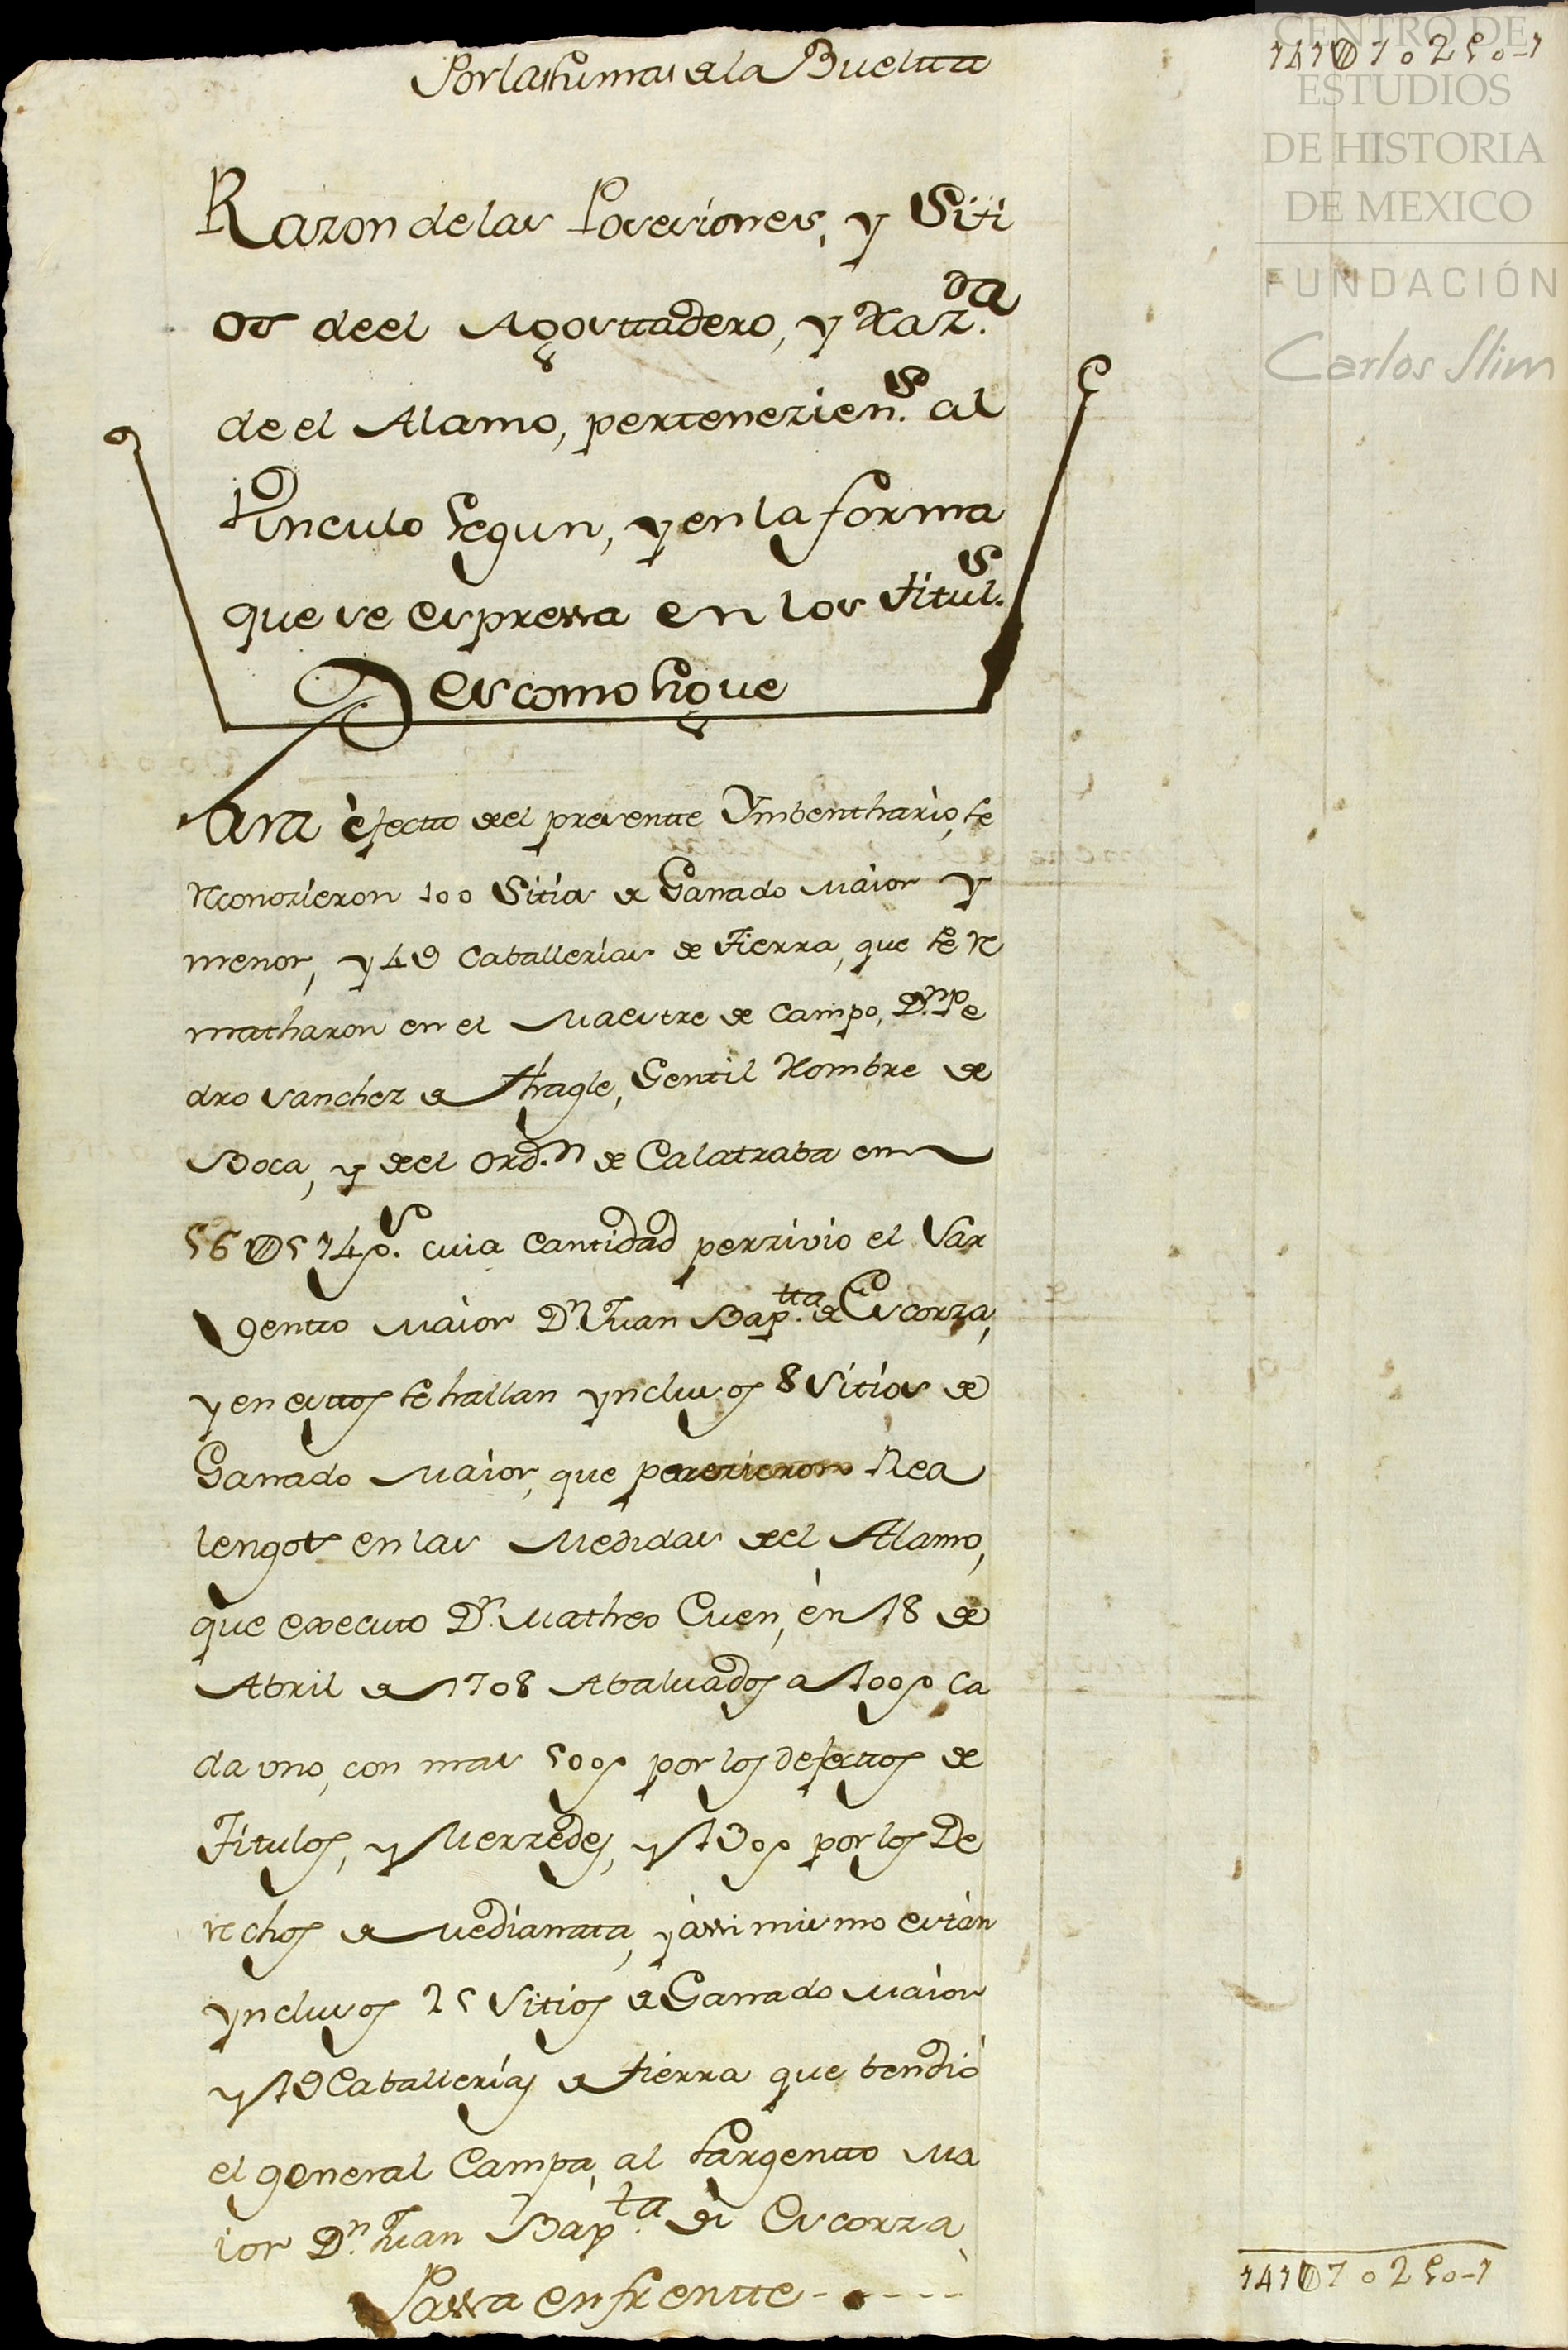 Por las sumas de la Bueltta
141U70250-1
CENTRO DE
ESTUDIOS
DE HISTORIA
DE MEXICO
FUNDACIÓN
Carlos Slim
Razon de las Posesiones, y Siti
os de el Agosttadero, y Haz.da
de el Alamo, pertenezien.s al
Vinculo segun, y en la forma
que se espressa en los titul.s
Pes como sigue
Para èfectto del presentte Ymbenthario, se
reconozieron 100 Sitios de Ganado maior y
menor, y 49 Caballerias de Tierra, que se re
matharon en el Maestre de Campo, Dn. Pe
dro Sanchez de Thagle, Gentil Hombre de
Boca, y del Ord.n de Calatraba en
56U514p.s cuia Cantidad perzivio el Sar
gentto Maior Dn. Juan Bap.tta de Escorza,
y en esttos se hallan ynclusos 8 Sitios de
Ganado Maior, que parezieron Rea
lengos en las Medidas del Alamo,
que executo Dn. Matheo Cuen, èn 18 de
Abril de 1708 Abaluados a 100p ca
da uno, con mas 500p por los defecttos de
Titulos, y Merzedes, y 130p por los De
rechos de Medianata, y assi mismo están
ynclusos 25 Sitios de Ganado Maior
y 19 Caballerías de tierra que bendió
el general Campa, al sargentto Ma
ior Dn. Juan Bap.ta de Escorza,
Passa en frentte - - - - -
141U70250-1